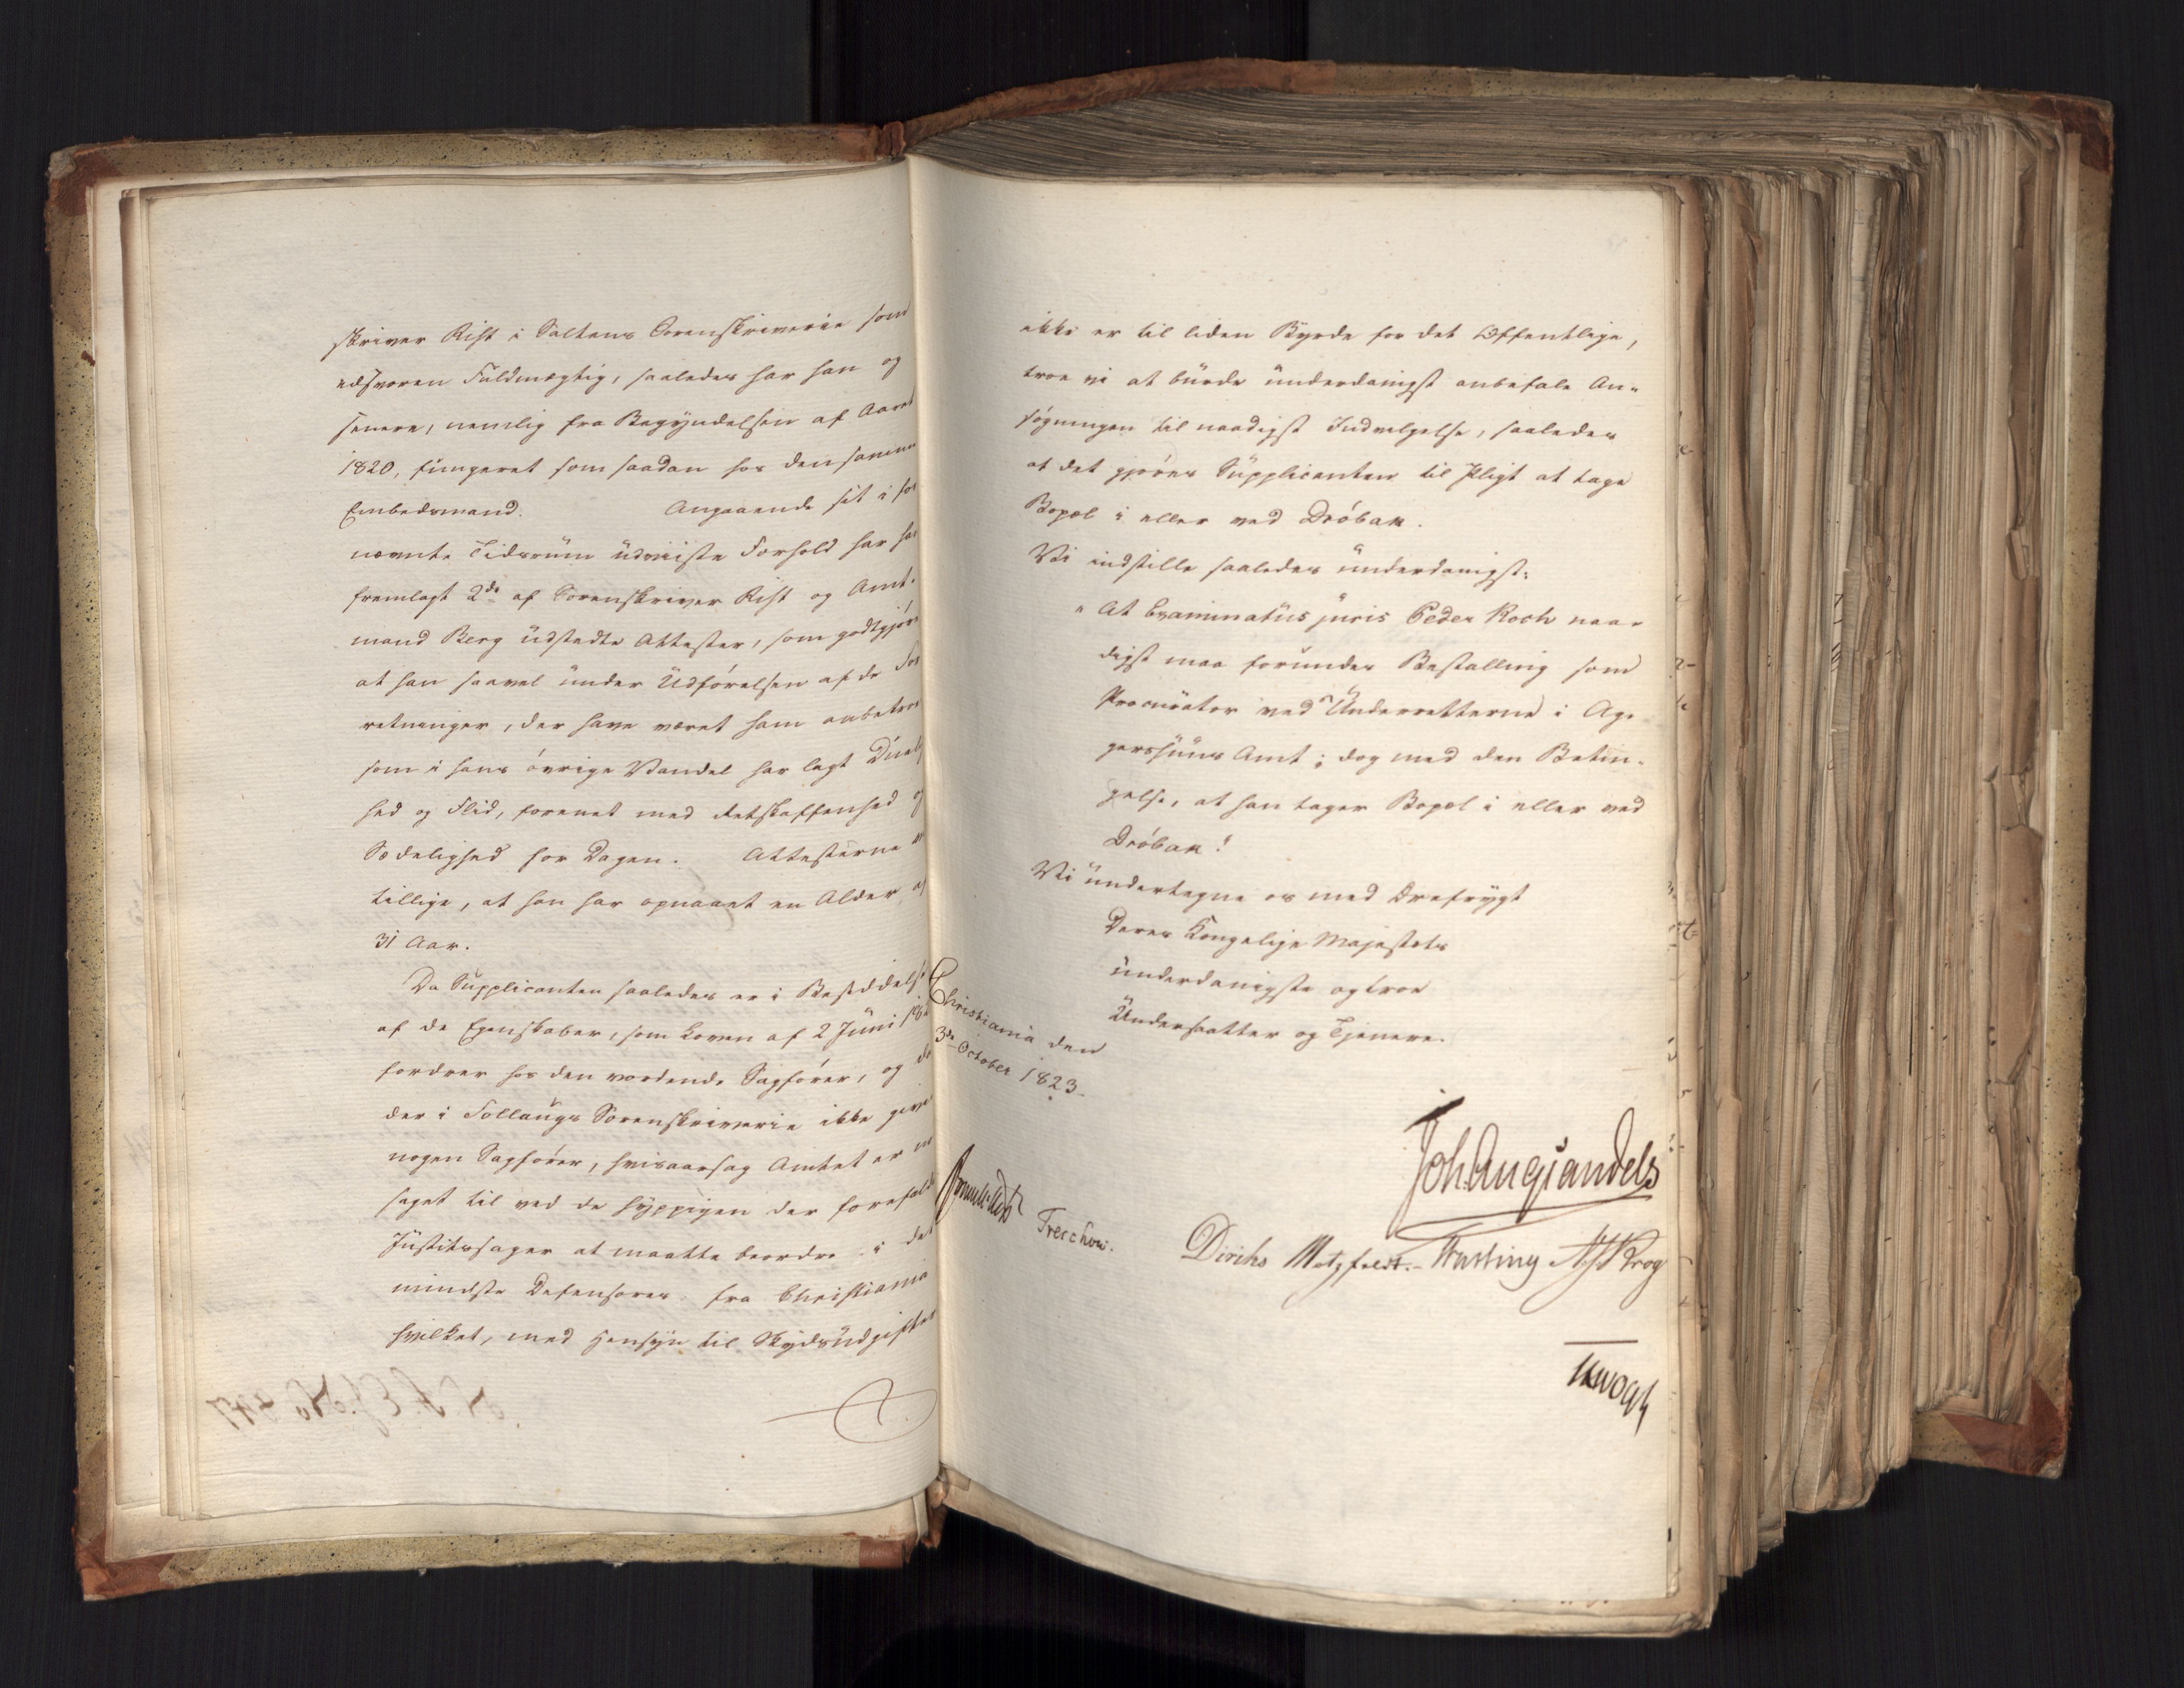 skriver Rist i Saltens Sorenskriverie som
edsvoren Fuldmægtig, saaledes har han og
senere, nemlig fra Begyndelsen af Aaret
1820, fungeret som saadan hos den samme
Embedsmand. Angaaende sit i for
nævnte Tidsrum udviiste Forhold har han
fremlagt 2de af Sorenskriver Rist og Amt-
mand Berg udstedte Attester, som godtgjør
at han saavel under Udførelsen af de For
retninger, der have været ham anbetroe
som i hans øvrige Vandel har lagt Duel
hed og Flid, forenet med Retskaffenhed og
Sædelighed for Dagen. Attesterne
tillige, at han har opnaaet en Alder af
31 Aar.
Da Supplicanten saaledes er i Besiddelse
af de Egenskaber, som Loven af 2 Juni
fordrer hos den vordende Sagfører, og da
der i Follaugs Sorenskriverie ikke gives
nogen Sagfører, hvisaarsag Amtet er
saget til ved de hyppigen der forefald
Justitssager at maatte beordre i det
mindste Defensores fra Christiania
hvilket, med Hensyn til Skydsudgifter
ikke er til liden Byrde for det Offentlige,
troe vi at burde underdanigst anbefale An-
søgningen til naadigst Indvilgelse, saaledes
at det gjøres Supplicanten til Pligt at tage
Bopæl i eller ved Drøbak.
Vi indstille saaledes underdanigst:
"At Examinatus juris Peder Koch naa-
digst maa forundes Bestalling som
Procurator ved Underretterne i Ag-
gershuus Amt; dog med den Betin-
gelse, at han tager Bopæl i eller ved
Drøbak."
Vi undertegne os med Ærefrygt
Deres Kongelige Majestæts
underdanigste og troe
Undersaatter og Tjenere.
Christiania den
3de October 1823.
Joh. Aug. Sandels
Sommerhielm
Treschow.
Diriks Motzfeldt. Fasting Krog
Vogt